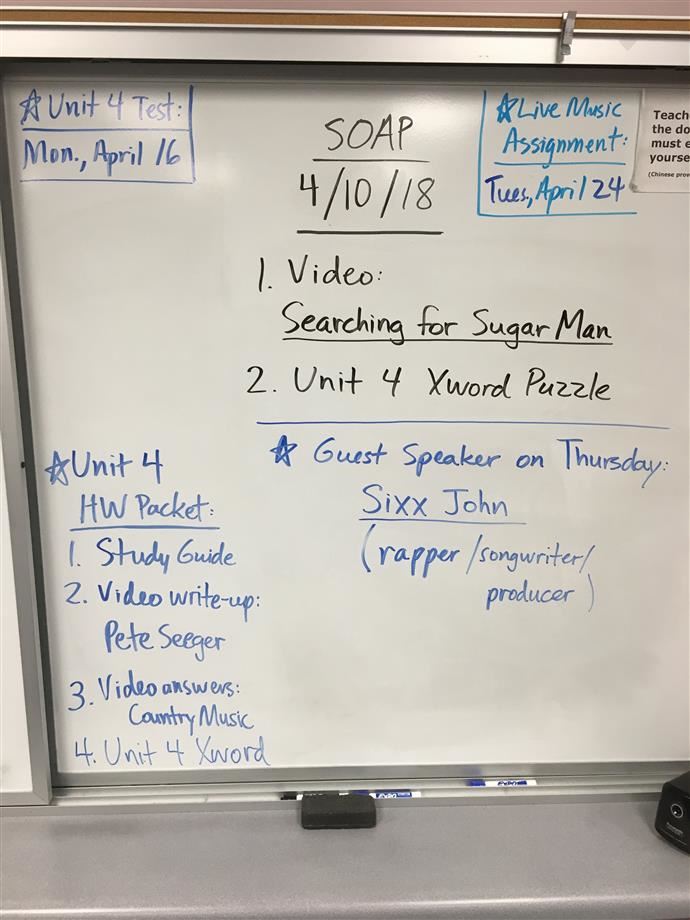 ☆ Unit 4 Test:
Mon., April 16
SOAP
4/10/18
☆ Live Music
Assignment:
Tues., April 24
Teach
the do
must e
yourse
(Chinese prov
1. Video:
Searching for Sugar Man
2. Unit 4 Xword Puzzle
☆ Guest Speaker on Thursday:
Sixx John
(rapper/songwriter/
producer)
☆ Unit 4
HW Packet:
1. Study Guide
2. Video write-up:
Pete Seeger
3. Video answers:
Country Music
4. Unit 4 Xword
EXPO
EXPO